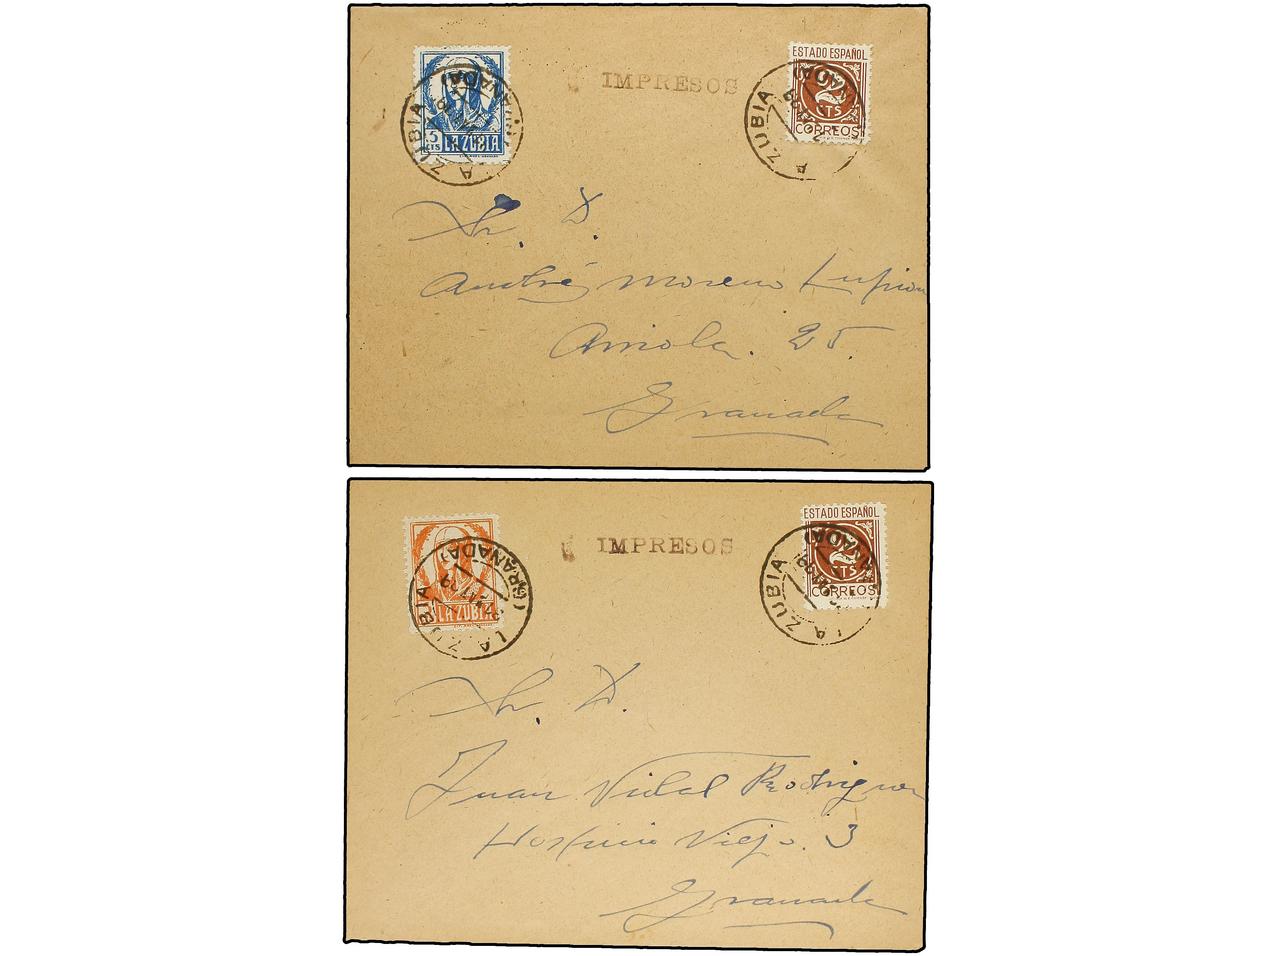 ESTADO ESPAÑOL
IMPRESOS
2
CTS
CORREOS
5
CTS
LA ZUBIA
LA ZUBIA (GRANADA)
A ZUBIA
Sr. D.
Andrés Moreno Lupion
Arriola. 25.
Granada
ESTADO ESPAÑOL
IMPRESOS
2
CTS
CORREOS
LA ZUBIA
LA ZUBIA (GRANADA)
LA ZUBIA (GRANADA)
Sr. D.
Juan Vidal Rodriguez
Hospicio Viejo. 3
Granada